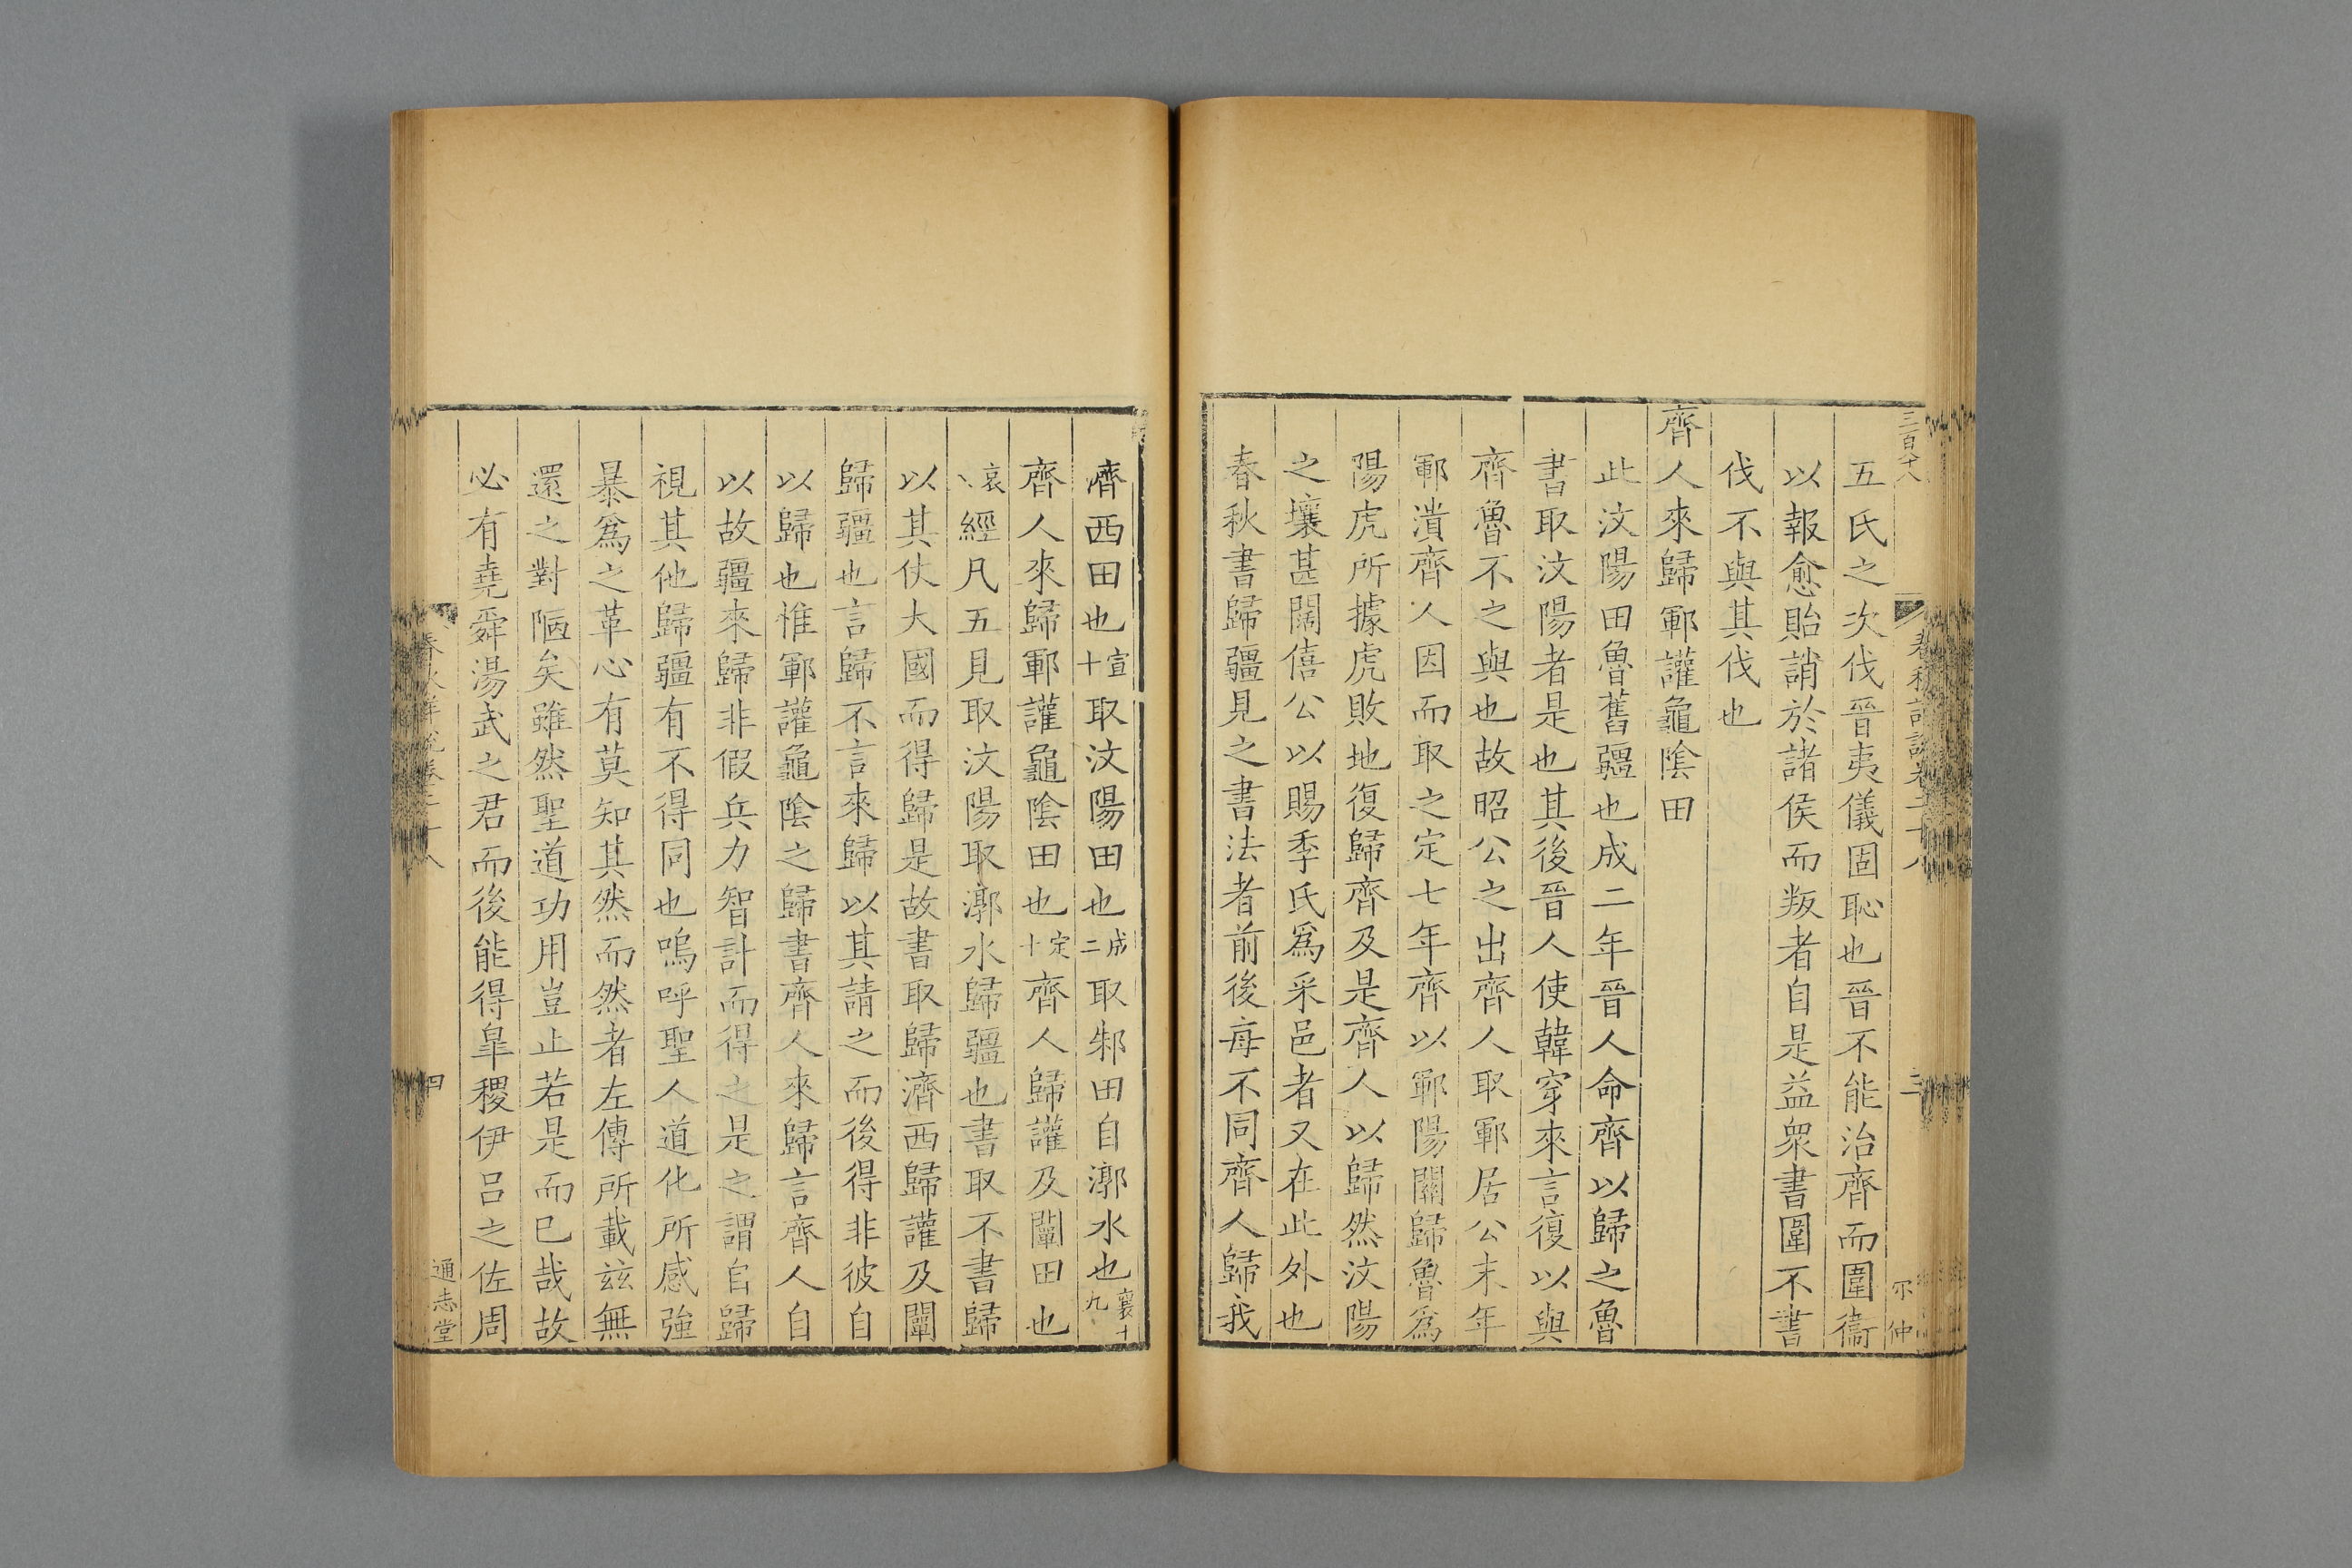 三百十八
五氏之次伐晉夷儀固恥也晉不能治齊而圍衞
以報愈貽誚於諸侯而叛者自是益衆書圍不書
伐不與其伐也
齊人來歸鄆讙龜陰田
此汶陽田魯舊疆也成二年晉人命齊以歸之魯
書取汶陽者是也其後晉人使韓穿來言復以與
齊魯不之與也故昭公之出齊人取鄆居公末年
鄆潰齊人因而取之定七年齊以鄆陽關歸魯爲
陽虎所據虎敗地復歸齊及是齊人以歸然汶陽
之壤甚闊僖公以賜季氏爲采邑者又在此外也
春秋書歸疆見之書法者前後每不同齊人歸我
濟西田也宣十取汶陽田也成二取邾田自漷水也襄十九
齊人來歸鄆讙龜陰田也定十齊人歸讙及闡田也
哀八經凡五見取汶陽取漷水歸疆也書取不書歸
以其仗大國而得歸是故書取歸濟西歸讙及闡
歸疆也言歸不言來歸以其請之而後得非彼自
以歸也惟鄆讙龜陰之歸書齊人來歸言齊人自
以故疆來歸非假兵力智計而得之是之謂自歸
視其他歸疆有不得同也嗚呼聖人道化所感強
暴爲之革心有莫知其然而然者左傳所載茲無
還之對陋矣雖然聖道功用豈止若是而已哉故
必有堯舜湯武之君而後能得皐稷伊呂之佐周
四
通志堂